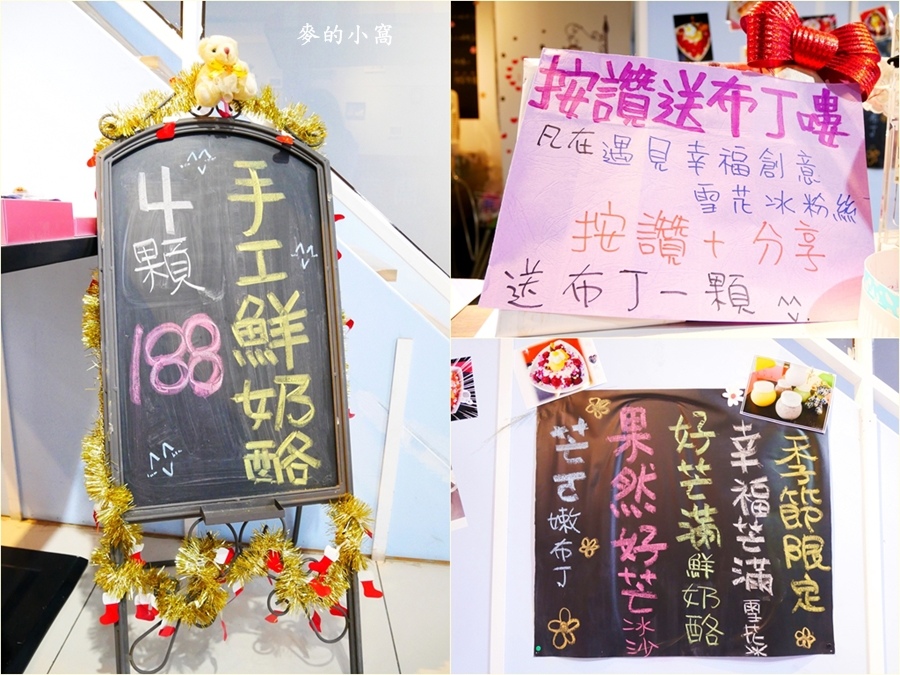 麥的小窩
手工鮮奶酪
4顆
188
按讚送布丁嘍
凡在遇見幸福創意
雪花冰粉絲
按讚+分享
送布丁一顆
季節限定
幸福芒滿雪花冰
好芒滿鮮奶酪
果然好芒冰沙
芒芒嫩布丁